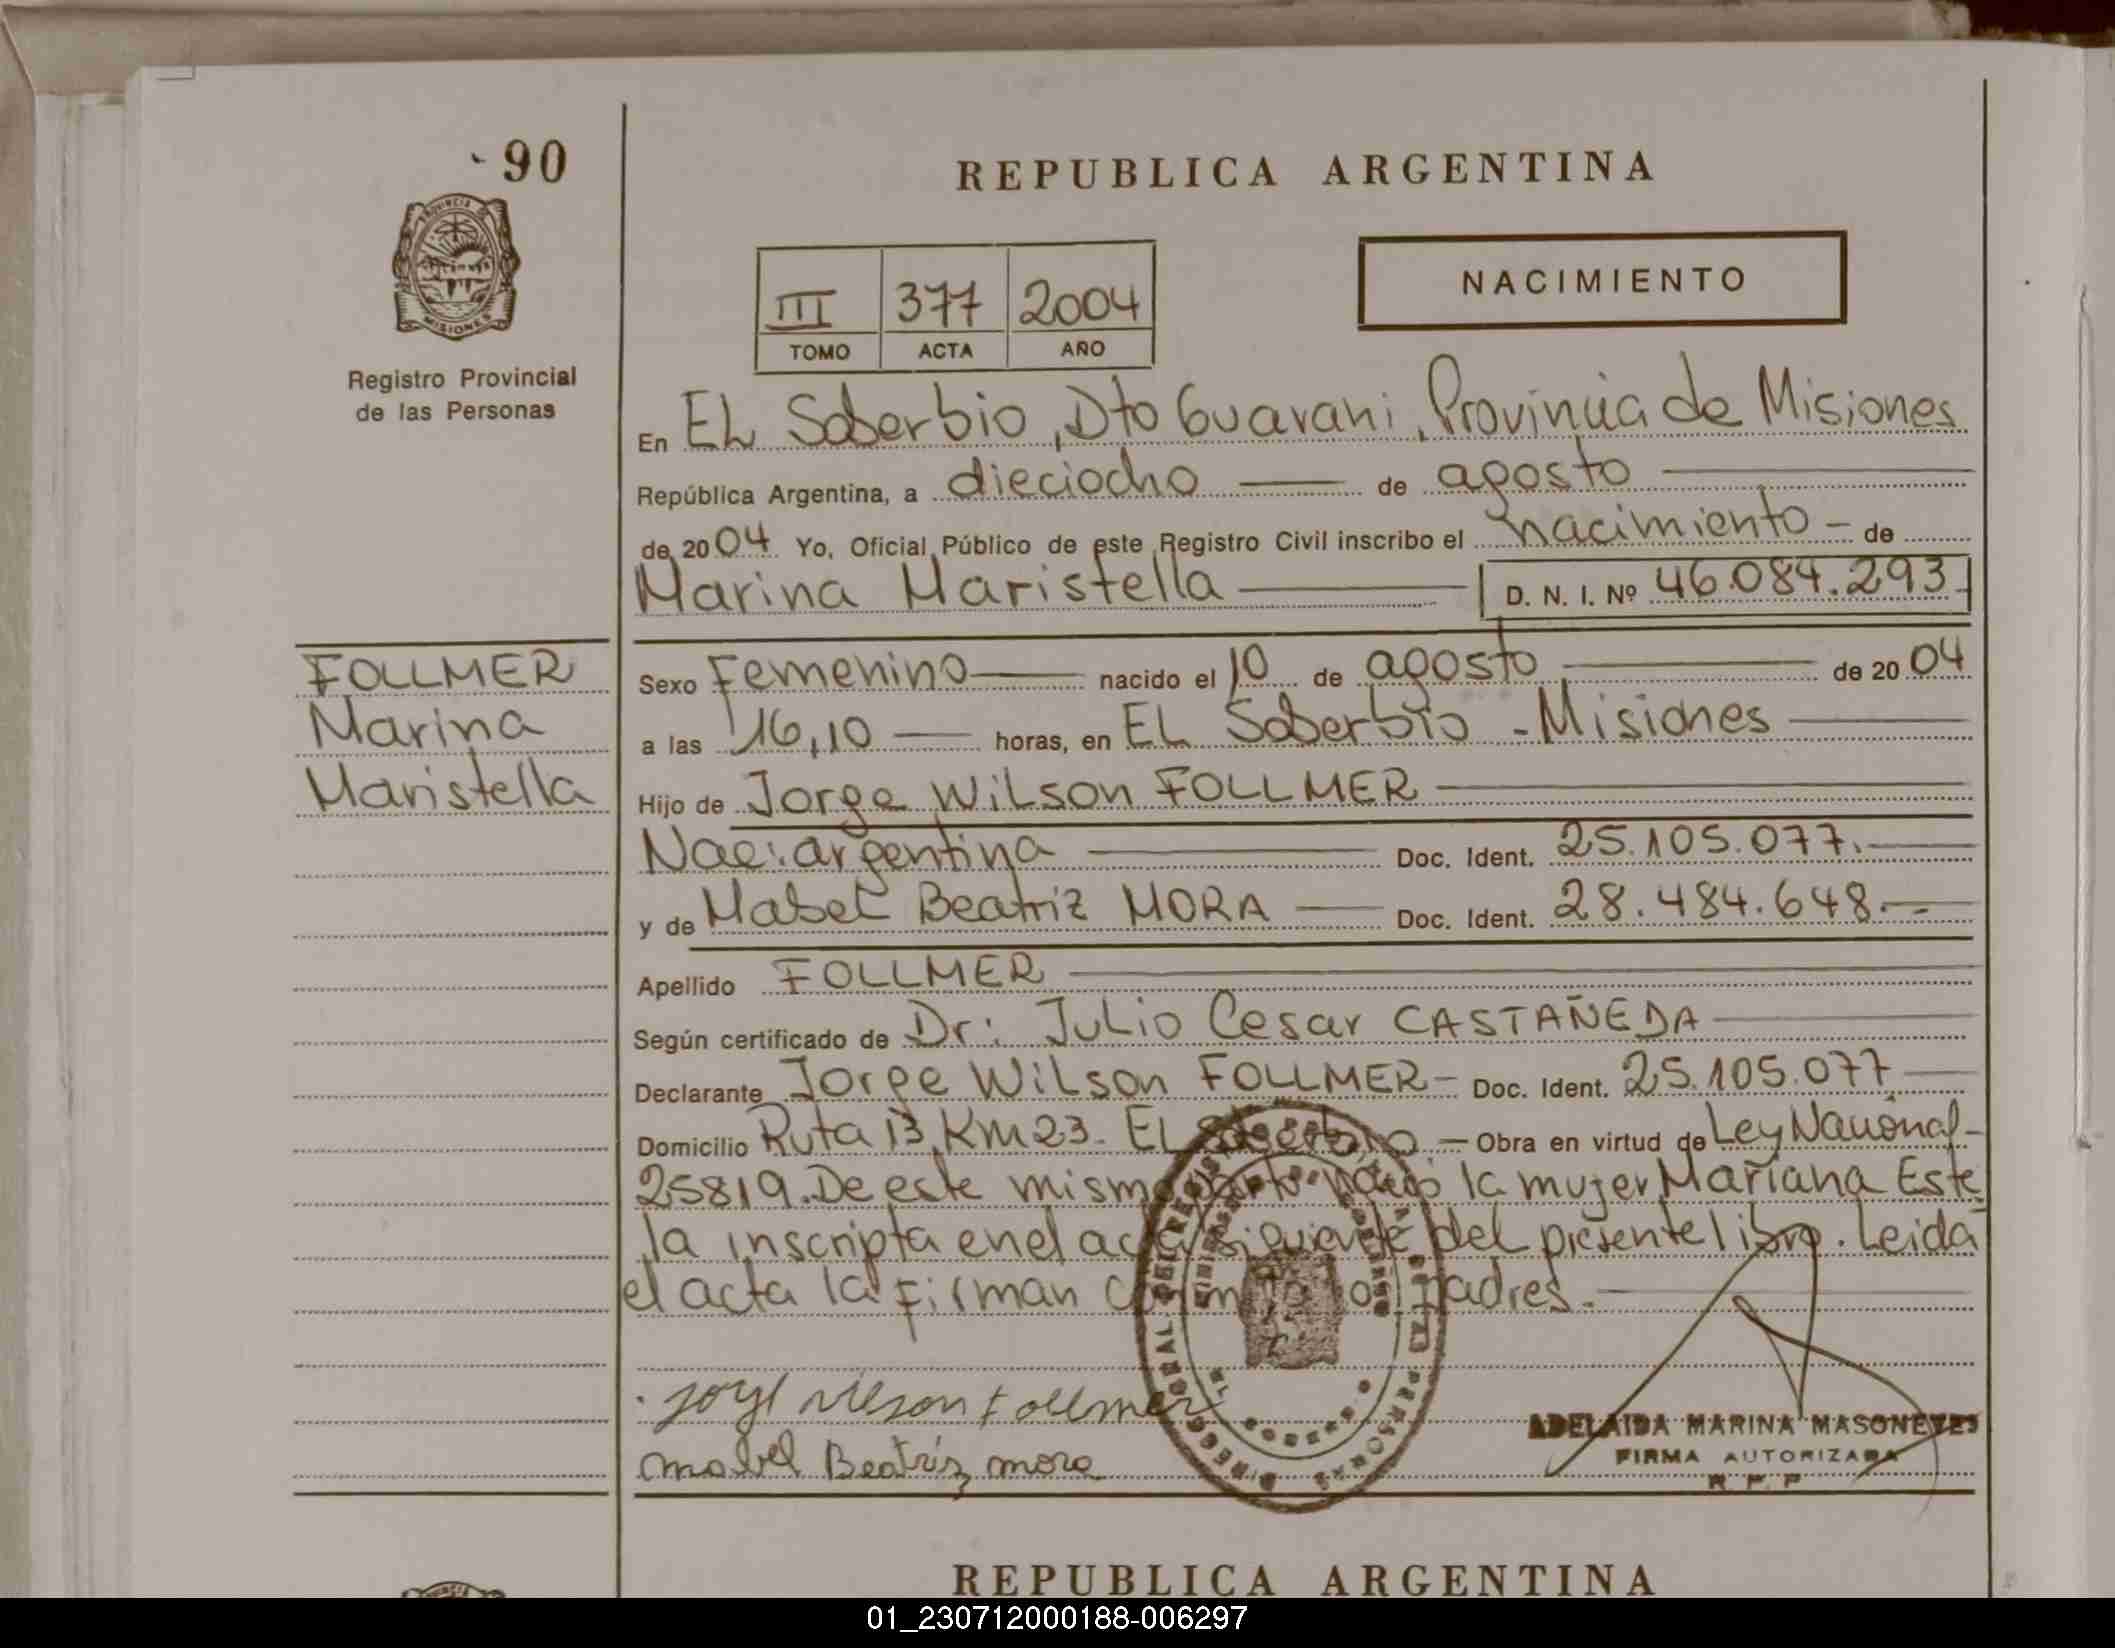 90
PROVINCIA DE
MISIONES
Registro Provincial
de las Personas
REPUBLICA ARGENTINA
NACIMIENTO
III 377 2004
TOMO ACTA AÑO
En EL Soberbio, Dto Guarani, Provincia de Misiones
República Argentina, a dieciocho de agosto
de 2004 Yo, Oficial Público de este Registro Civil inscribo el nacimiento de
Marina Maristella D. N. I. Nº 46.084.293
FOLLMER
Marina
Maristella
Sexo Femenino nacido el 10 de agosto de 2004
a las 16,10 horas, en EL Soberbio - Misiones
Hijo de Jorge Wilson FOLLMER
Nac: argentina Doc. Ident. 25.105.077.
y de Mabel Beatriz MORA Doc. Ident. 28.484.648.-
Apellido FOLLMER
Según certificado de Dr: Julio Cesar CASTAÑEDA
Declarante Jorge Wilson FOLLMER - Doc. Ident. 25.105.077
Domicilio Ruta 13 Km 23. EL Soberbio.- Obra en virtud de Ley Nacional-
25819. De este mismo parto nació la mujer Mariana Este
la inscripta en el acta siguiente del presente libro. Leida
el acta la firman conmigo los padres.
Jorge Wilson Follmer
Mabel Beatriz Mora
ADELAIDA MARINA MASONEYES
FIRMA AUTORIZADA
R. P. P
REPUBLICA ARGENTINA
01_230712000188-006297